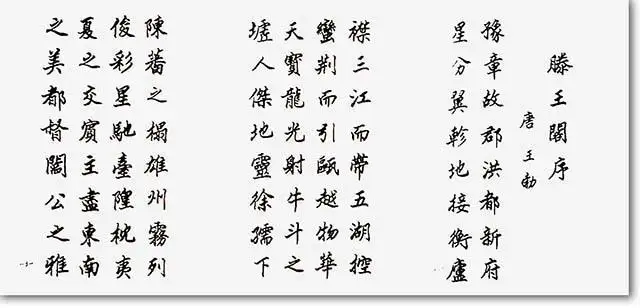 滕王閣序
唐 王勃
豫章故郡洪都新府
星分翼軫地接衡廬
襟三江而帶五湖控
蠻荊而引甌越物華
天寶龍光射牛斗之
墟人傑地靈徐孺下
陳蕃之榻雄州霧列
俊彩星馳臺隍枕夷
夏之交賓主盡東南
之美都督閻公之雅